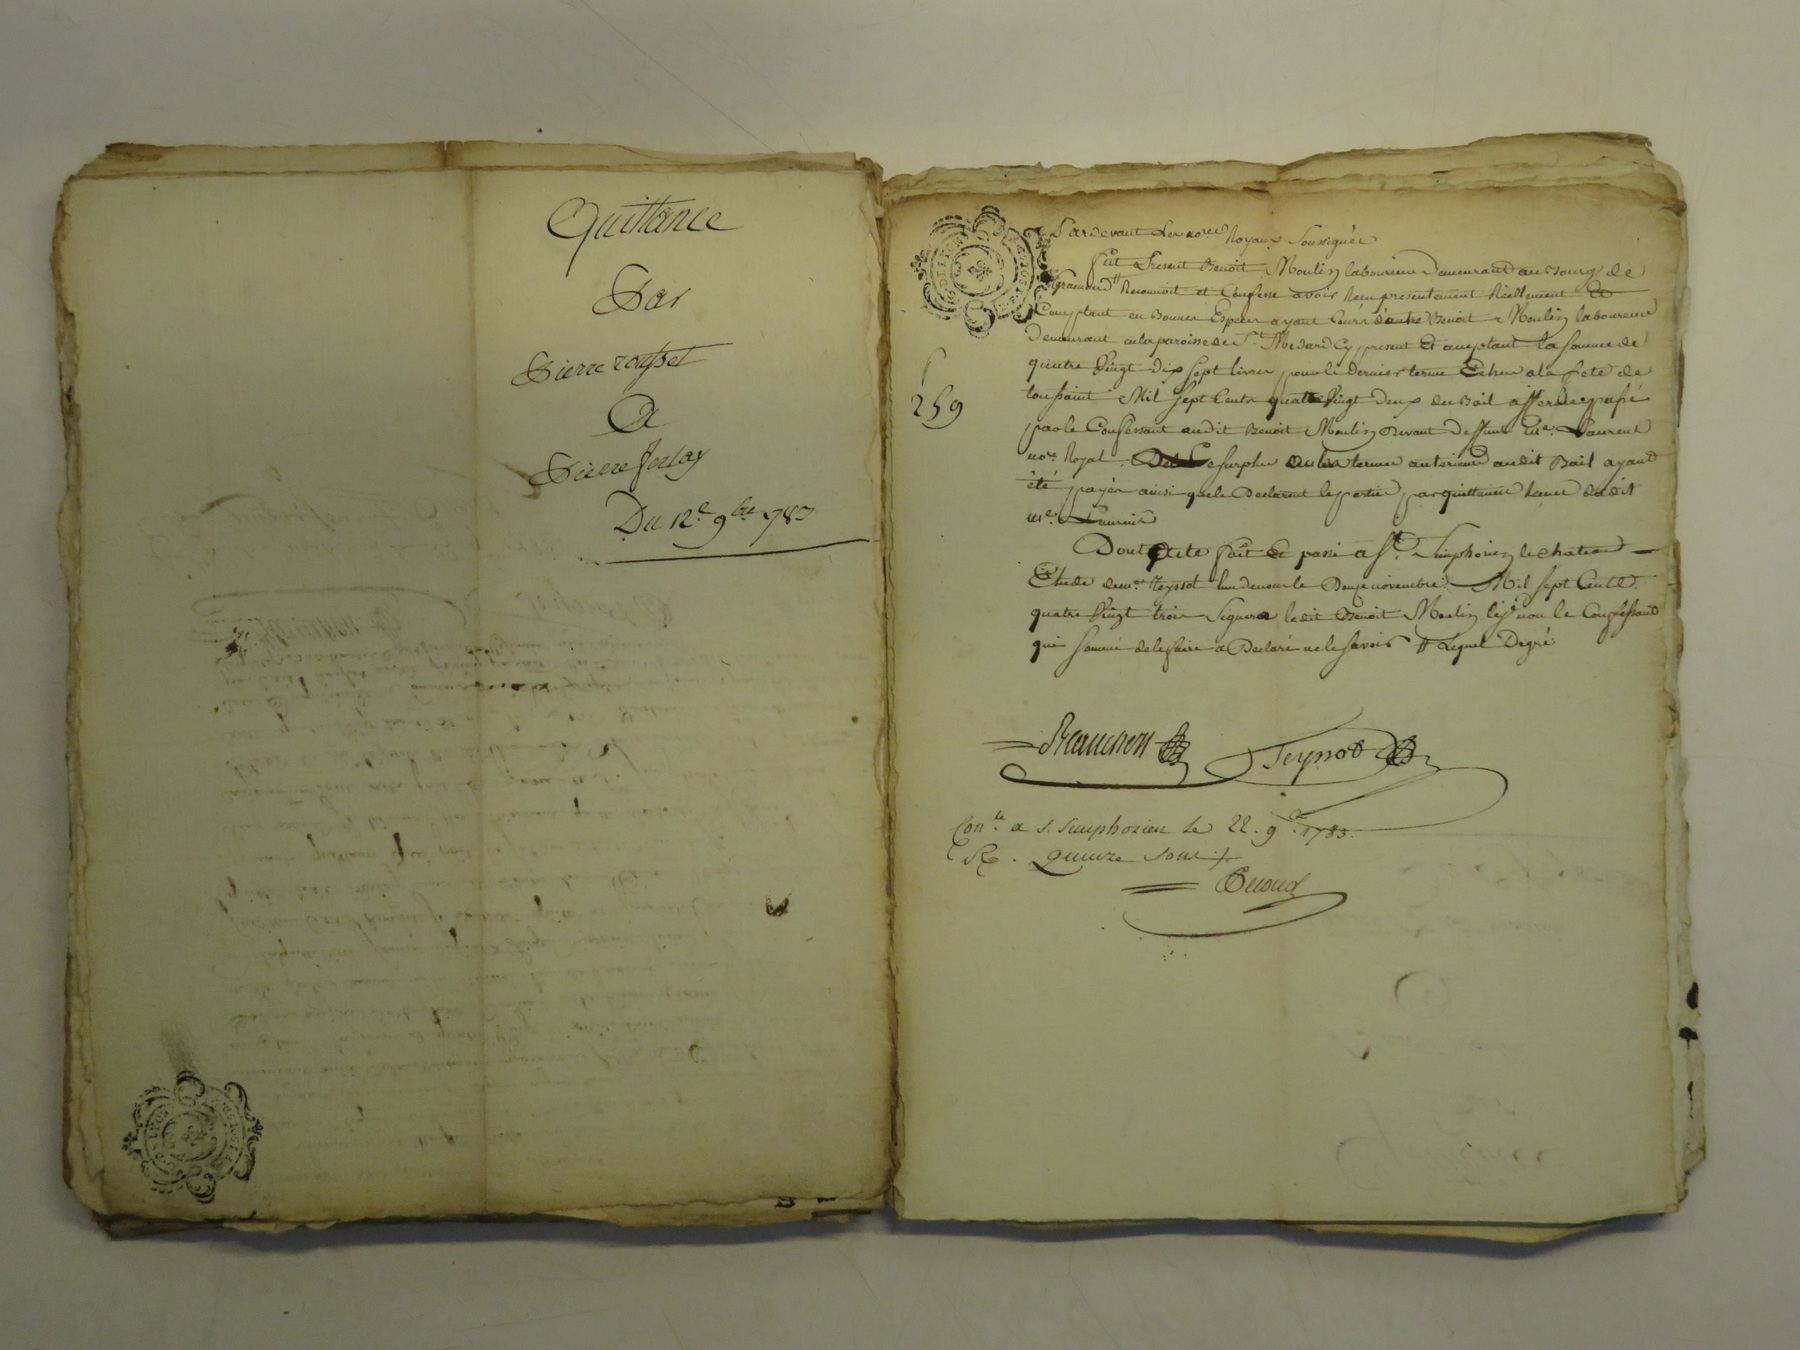 Quittance
Par
Pierre rousset
A
Pierre ferlay
Du 12e 9bre 783
Pardevant Les nores Royaux Soussignés
fut Present Benoit Moulin laboureur demeurant au Bourg de
Gramond # Reconnoit et Confesse avoir Reçu presentement Réellement et
Comptant en Bonnes Especes ayant Cours d'autre Benoit Moulin laboureur
demeurant en la paroisse de St Medard Cy present Et acceptant la somme de
quatre Vingt dix sept livres pour le dernier terme Echu a la fete de
toussaint Mil sept Cents quatre Vingt deux du Bail a ferme passé
par le Confessant audit Benoit Moulin devant deffunt Me Laurent
nore Royal. Le surplus des termes anterieurs audit Bail ayant
été payés ainsi que le Declarent les parties par quittance devant ledit
Me Laurent
Dont acte fait Et passé a St Simphorien le chateau
Etude de me Teyssot l'un de nous le Douze novembre Mil sept Cents
quatre Vingt trois Signera ledit Benoit Moulin non le Confessant
qui sommé de le faire a Declaré ne le savoir # Lequel Degré
259
Teyssot
Conlé a S. Simphorien le 22. 9e 1783.
R. Quinze sous